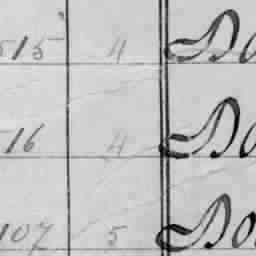 515 4 Do
16 4 Do
107 5 Do